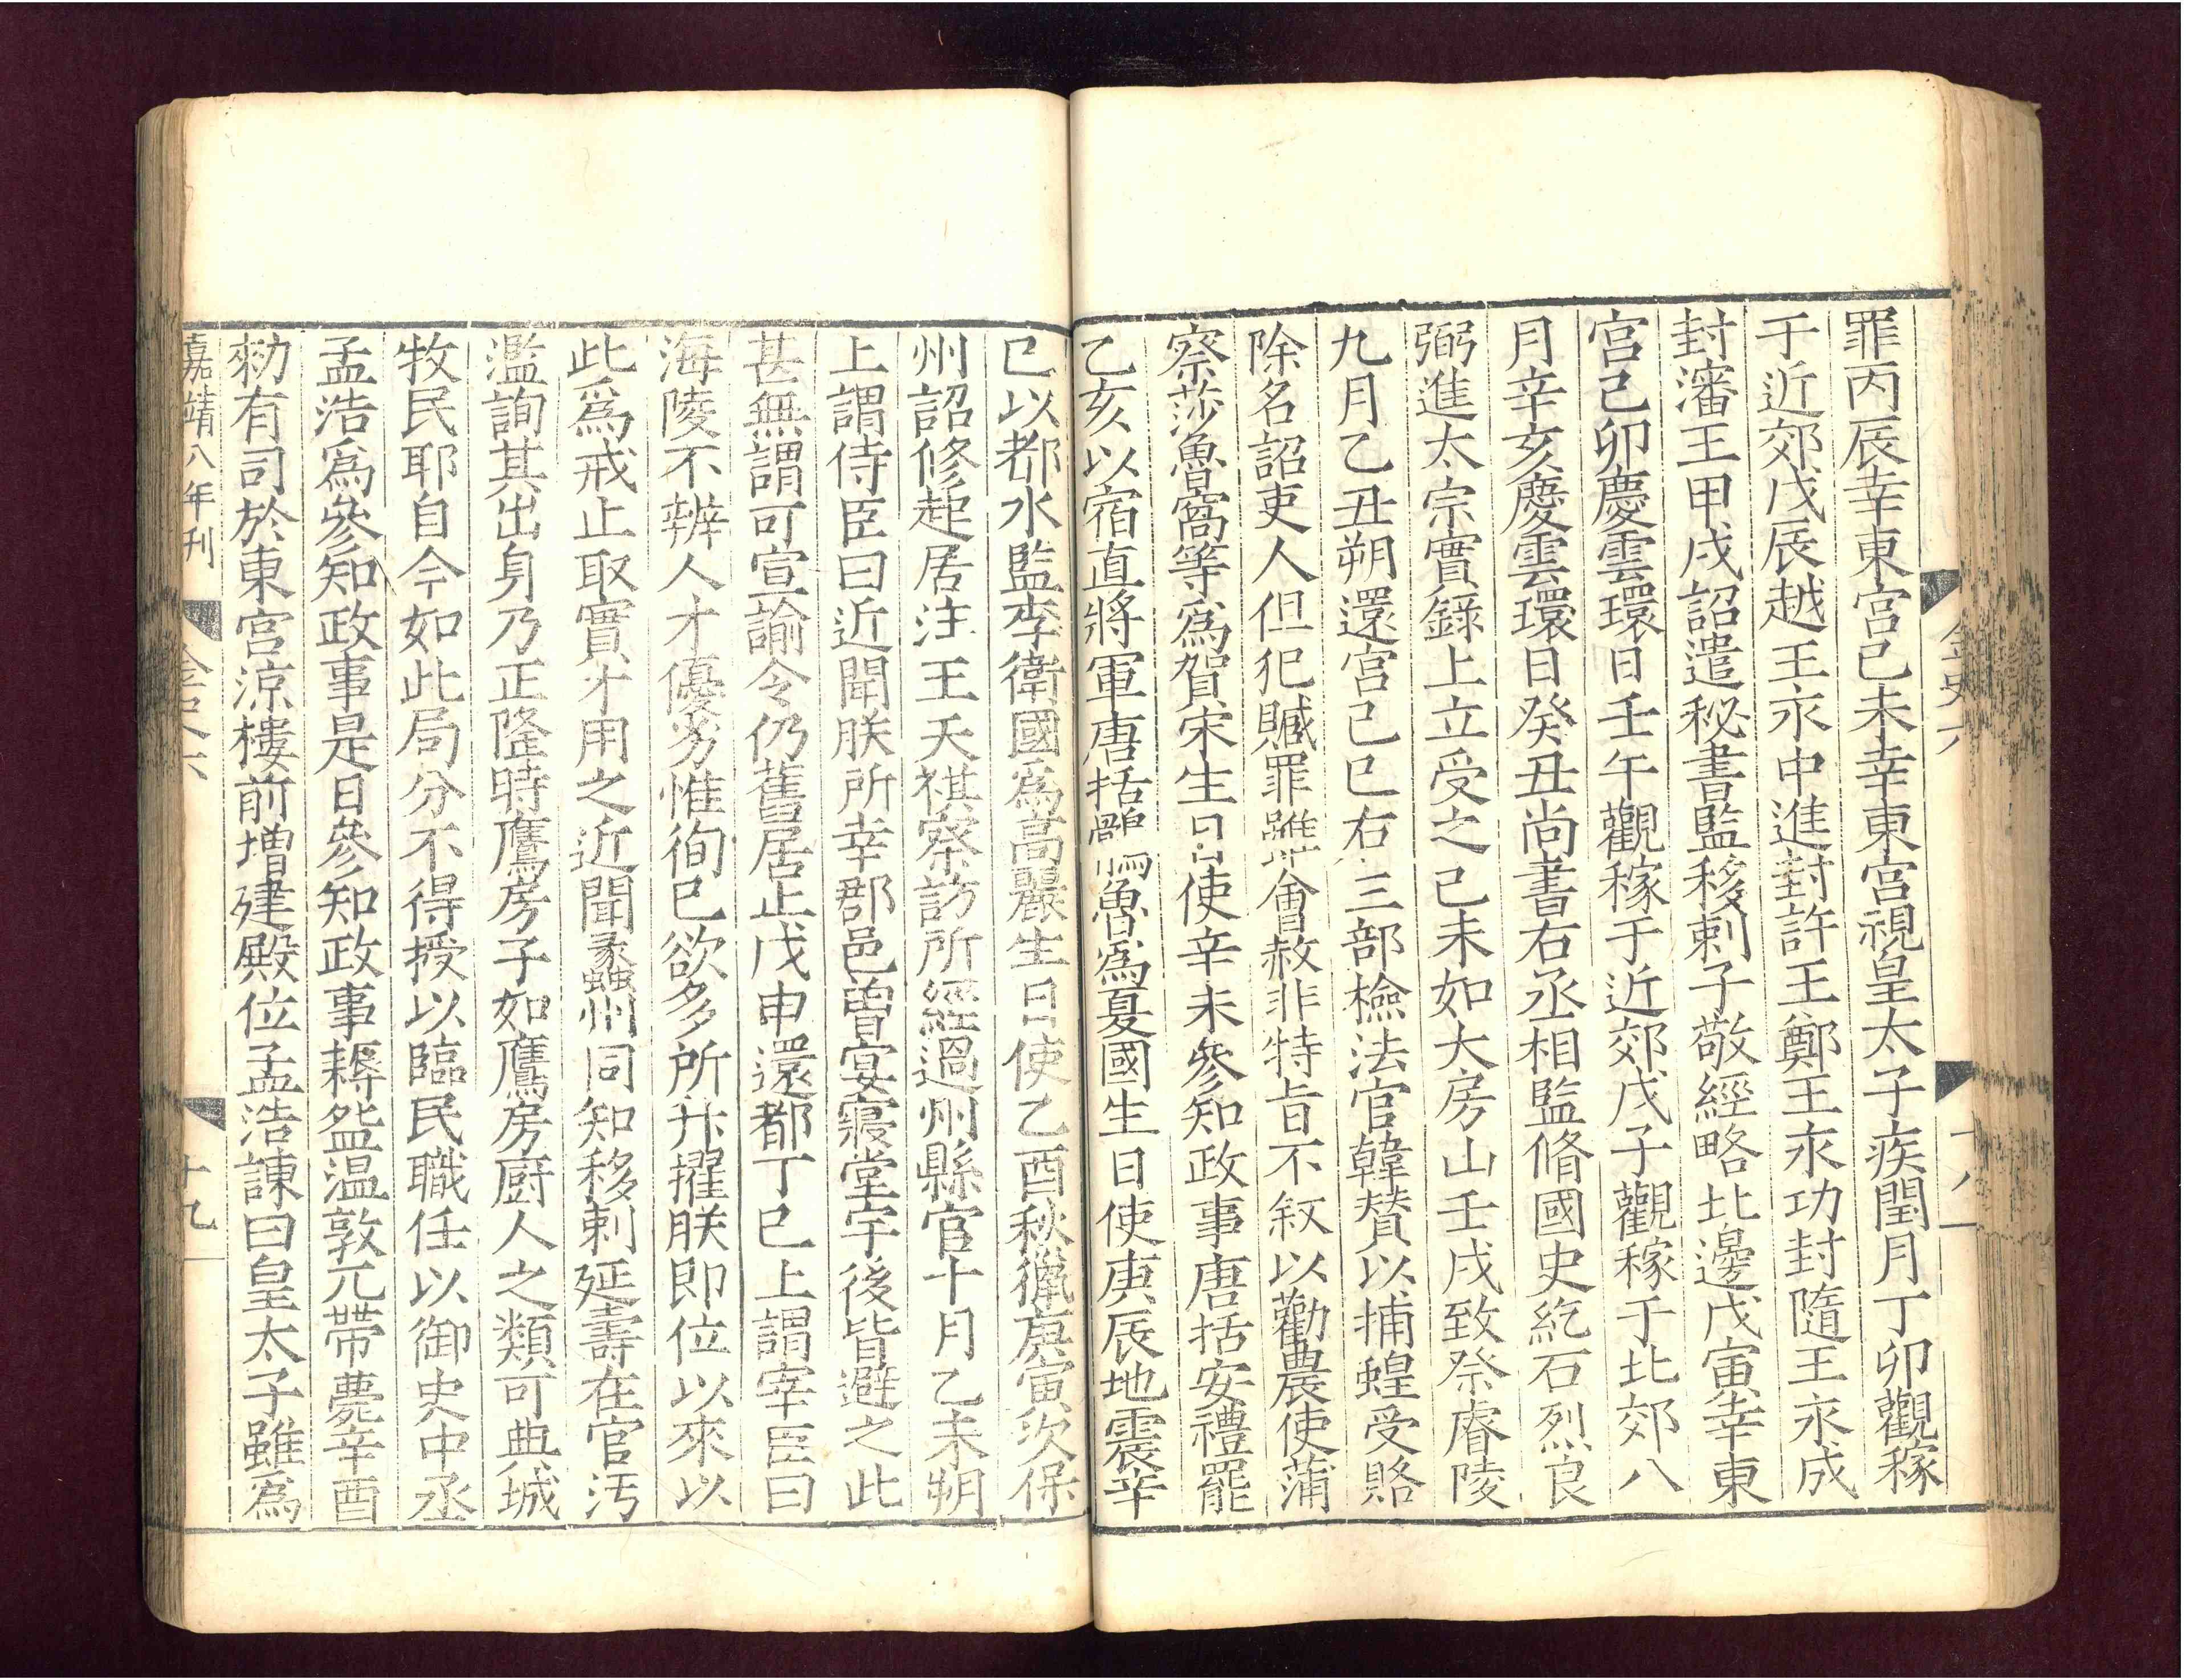 罪丙辰幸東宮己未幸東宮視皇太子疾閏月丁卯觀稼
于近郊戊辰越王永中進封許王鄭王永功封隨王永成
封瀋王甲戌詔遣秘書監移剌子敬經略北邊戊寅幸東
宮己卯慶雲環日壬午觀稼于近郊戊子觀稼于北郊八
月辛亥慶雲環日癸丑尚書右丞相監脩國史紇石烈良
弼進太宗實録上立受之己未如大房山壬戌致祭睿陵
九月乙丑朔還宮己巳右三部檢法官韓賛以捕蝗受賂
除名詔吏人但犯贓罪雖會赦非特旨不叙以勸農使蒲
察莎魯窩等爲賀宋生日使辛未參知政事唐括安禮罷
乙亥以宿直將軍唐括鶻魯爲夏國生日使庚辰地震辛
巳以都水監李衛國爲高麗生日使乙酉秋獵庚寅次保
州詔修起居注王天祺察訪所經過州縣官十月乙未朔
上謂侍臣曰近聞朕所幸郡邑曾宴寢堂宇後皆避之此
甚無謂可宣諭令仍舊居止戊申還都丁巳上謂宰臣曰
海陵不辨人才優劣惟徇已欲多所升擢朕即位以來以
此爲戒止取實才用之近聞蠡州同知移剌延壽在官汚
濫詢其出身乃正隆時鷹房子如鷹房厨人之類可典城
牧民耶自今如此局分不得授以臨民職任以御史中丞
孟浩爲參知政事是日參知政事耨盌温敦兀帶薨辛酉
勑有司於東宮涼樓前增建殿位孟浩諫曰皇太子雖爲
嘉靖八年刊
金史六
十九